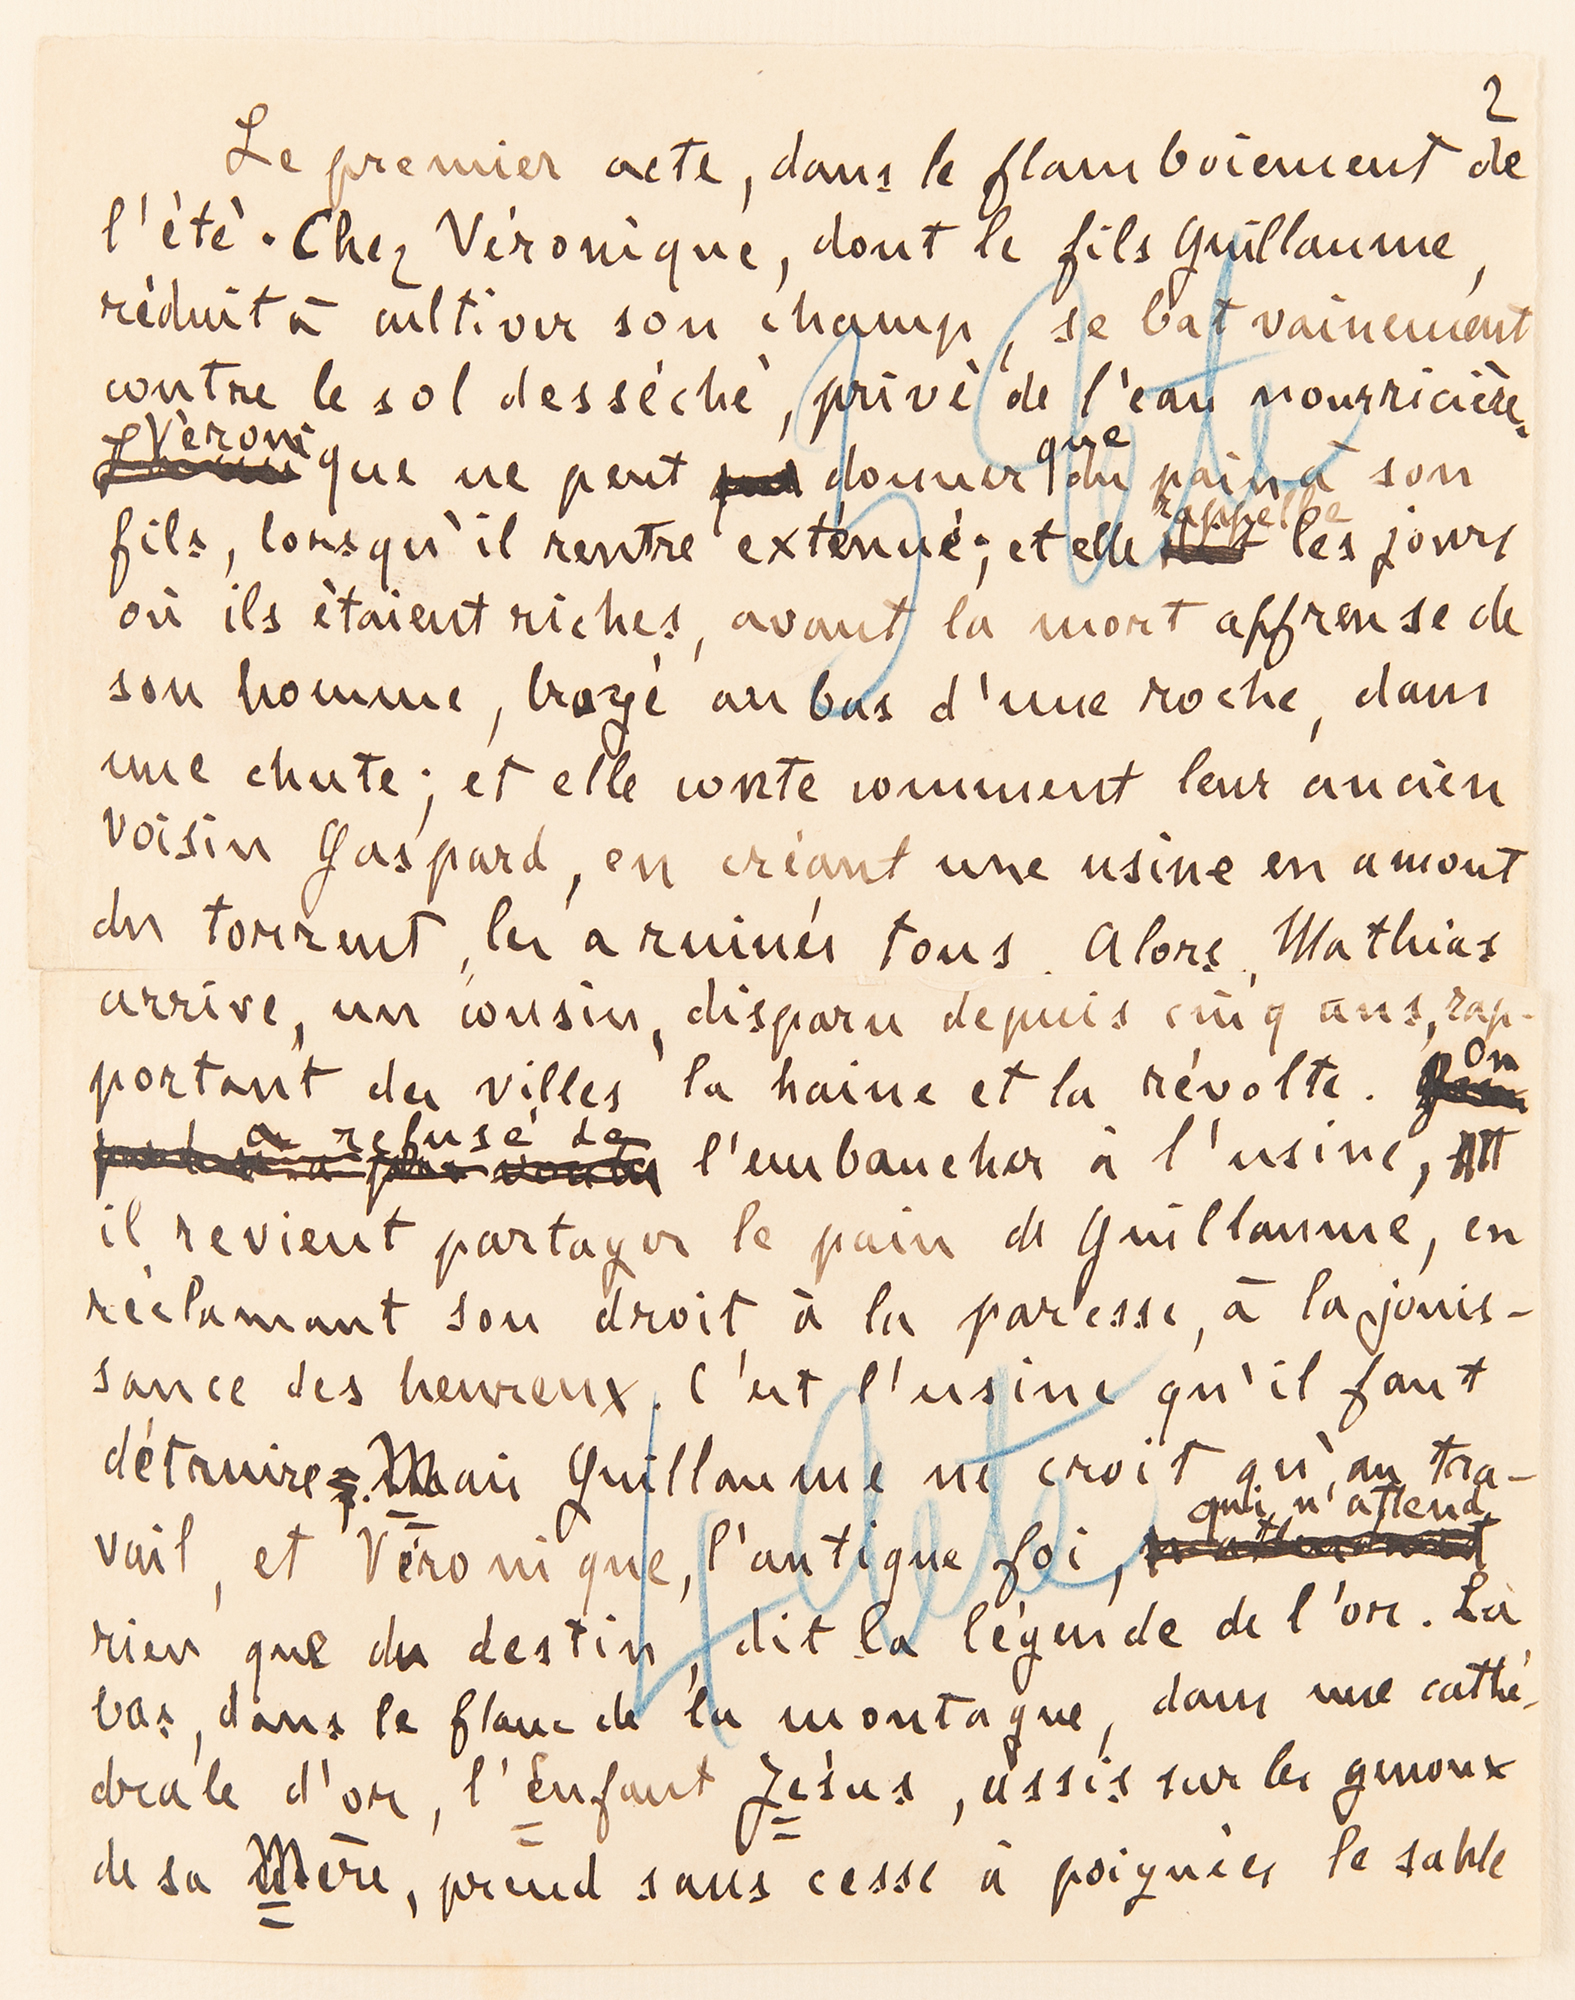 2
Le premier acte, dans le flamboiement de
l'été. Chez Véronique, dont le fils Guillaume,
réduit à cultiver son champ, se bat vainement
contre le sol desséché, privé de l'eau nourricière.
Véronique ne peut donner que du pain à son
fils, lorsqu'il rentre exténué; et elle rappelle les jours
où ils étaient riches, avant la mort affreuse de
son homme, broyé au bas d'une roche, dans
une chute; et elle conte comment leur ancien
voisin Gaspard, en créant une usine en amont
du torrent, les a ruinés tous. Alors, Mathias
arrive, un cousin, disparu depuis cinq ans, rap-
portant des villes la haine et la révolte. On
a refusé de l'embaucher à l'usine, et
il revient partager le pain de Guillaume, en
réclamant son droit à la paresse, à la jouis-
sance des heureux. C'est l'usine qu'il faut
détruire. Mais Guillaume ne croit qu'au tra-
vail, et Véronique, l'antique foi, qui n'attend
rien que du destin, dit la légende de l'or. Là
bas, dans le flanc de la montagne, dans une cathé-
drale d'or, l'Enfant Jésus, assis sur les genoux
de sa Mère, prend sans cesse à poignées le sable